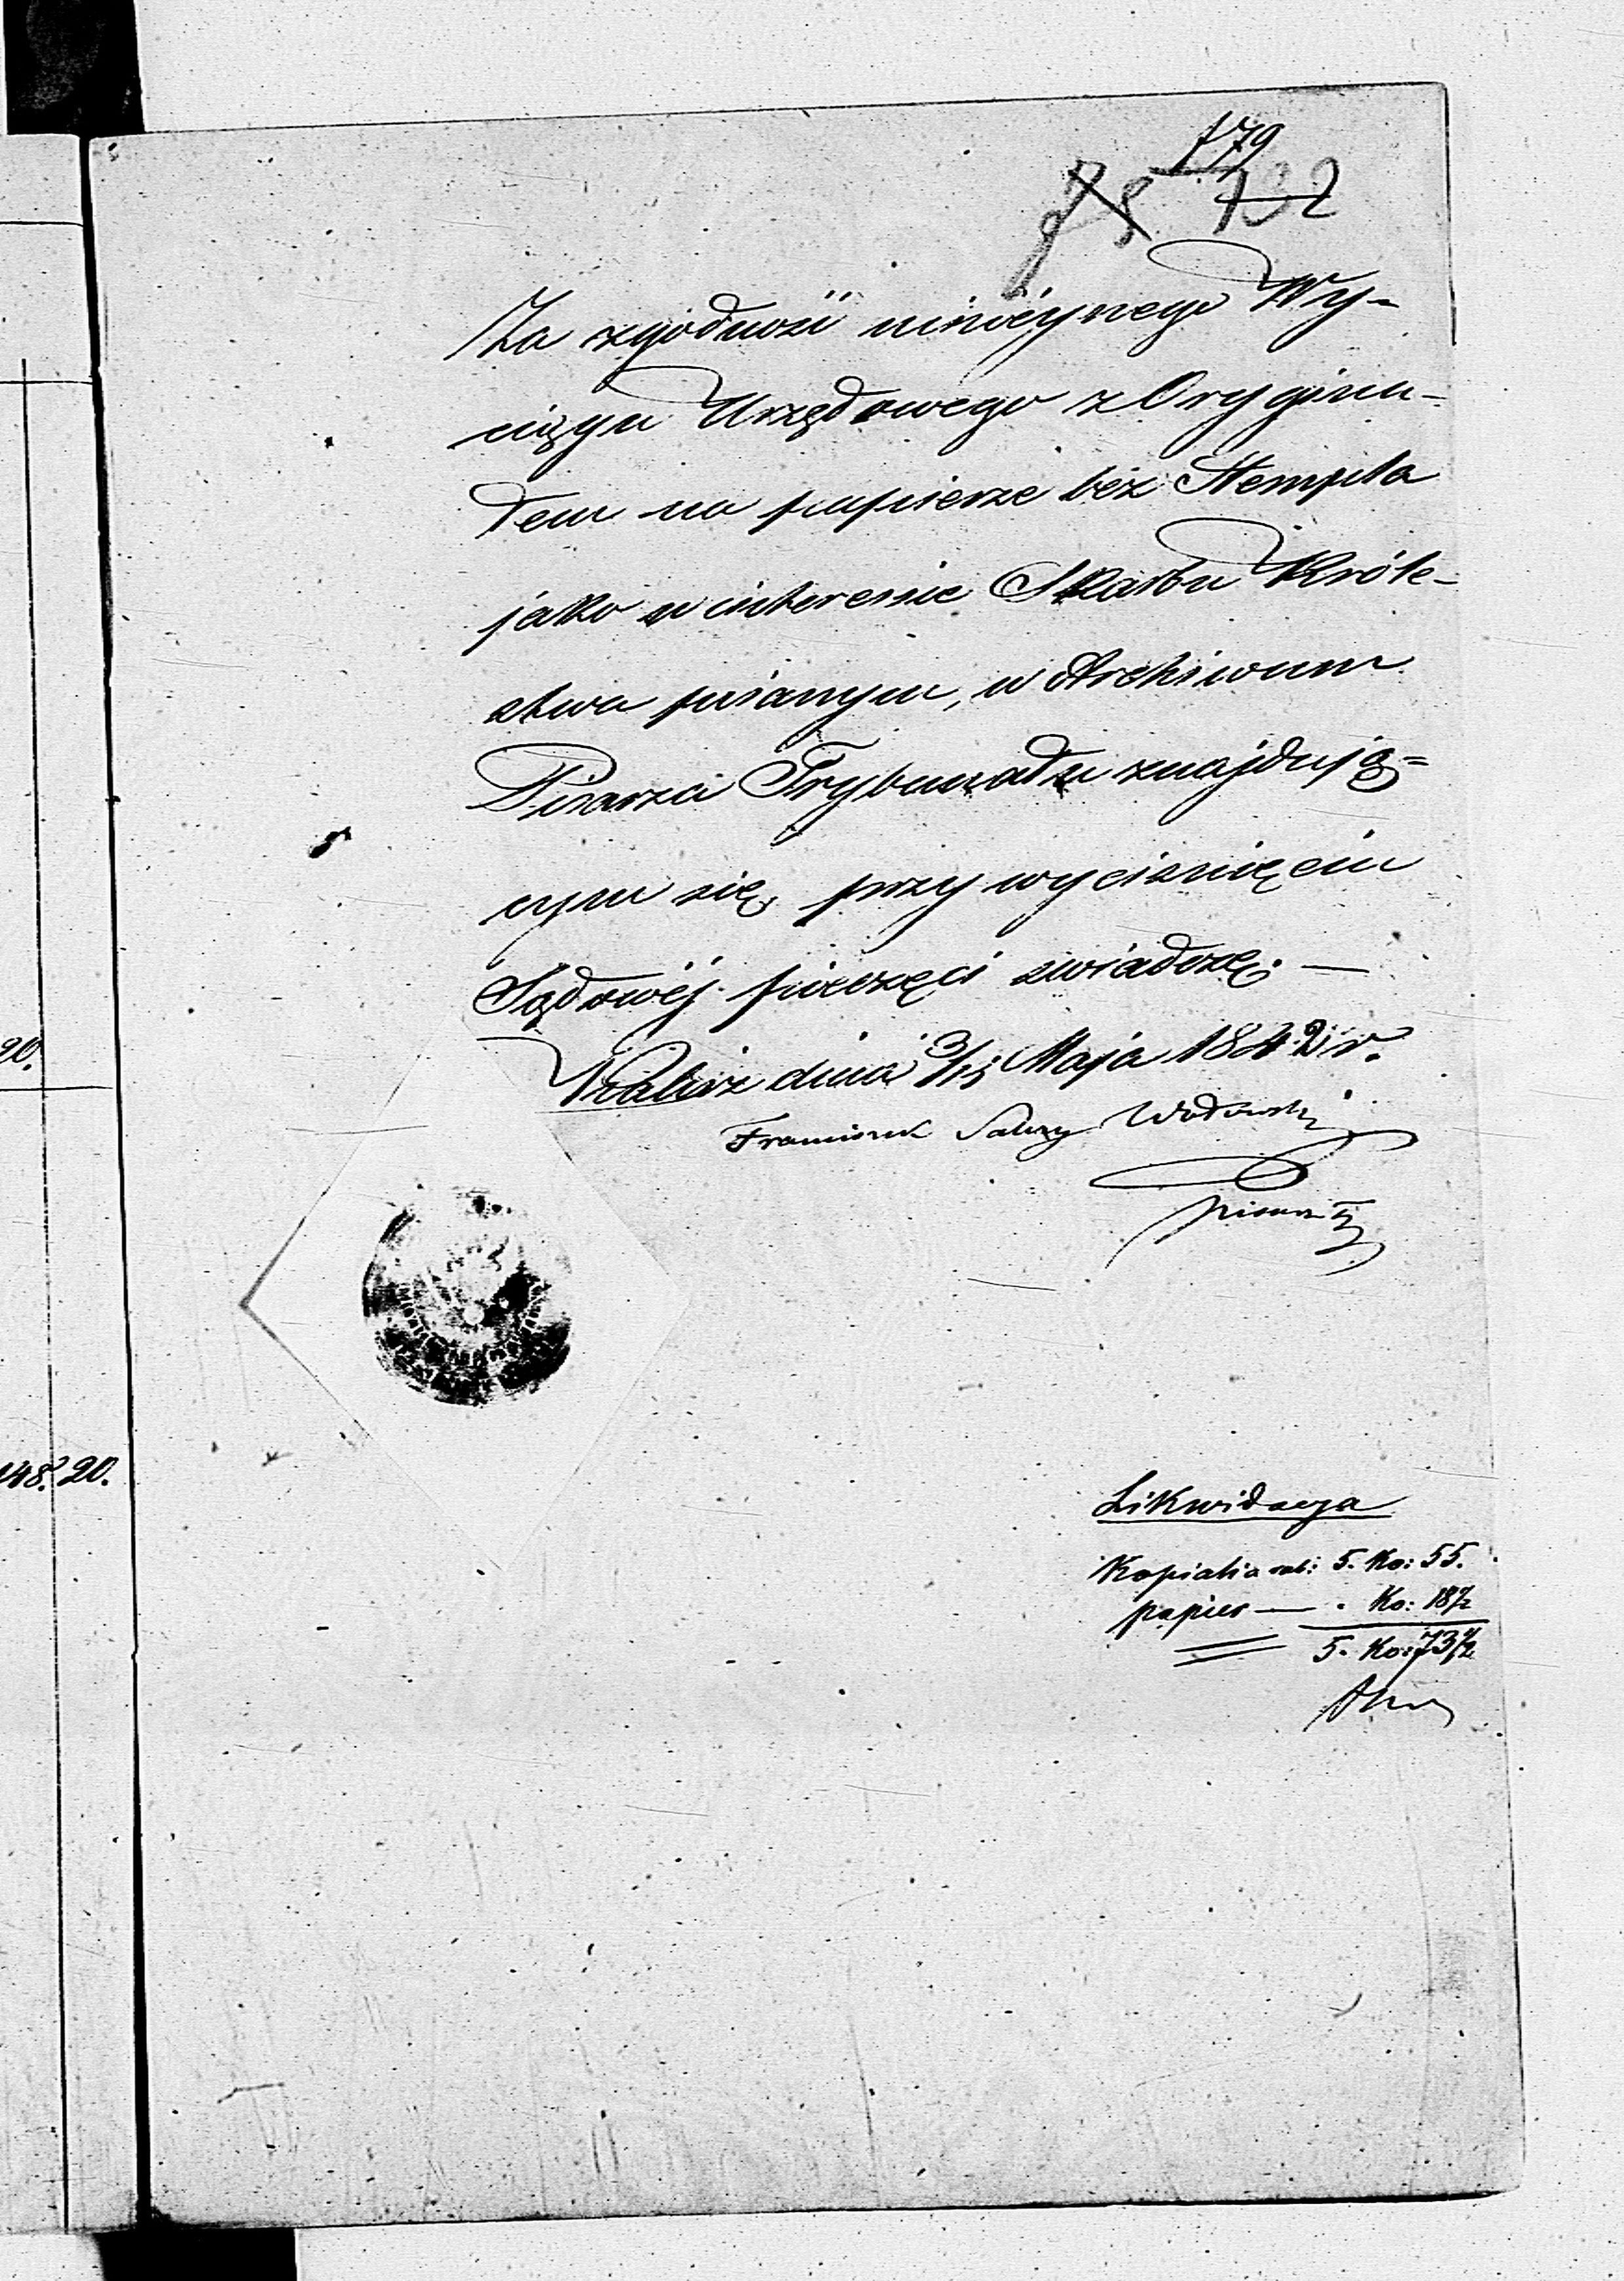 179
75 132
Za zgodność ninieyszego Wy-
ciągu Urzędowego z Orygina-
łem na papierze bez Stempla
jako w interessie Skarbu Króle-
stwa pisanym, w Archiwum
Pisarza Trybunału znajdują=
cym się, przy wyciśnięciu
Sądowéj pieczęci zwiadczę. —
Kalisz dnia 3/15 Maja 1842 r.
Franciszek Salezy
Pisarz
20.
148. 20.
Likwidacya
Kopialia rub: 5. Ko: 55.
papier — . Ko: 18½
5. Ko: 73½